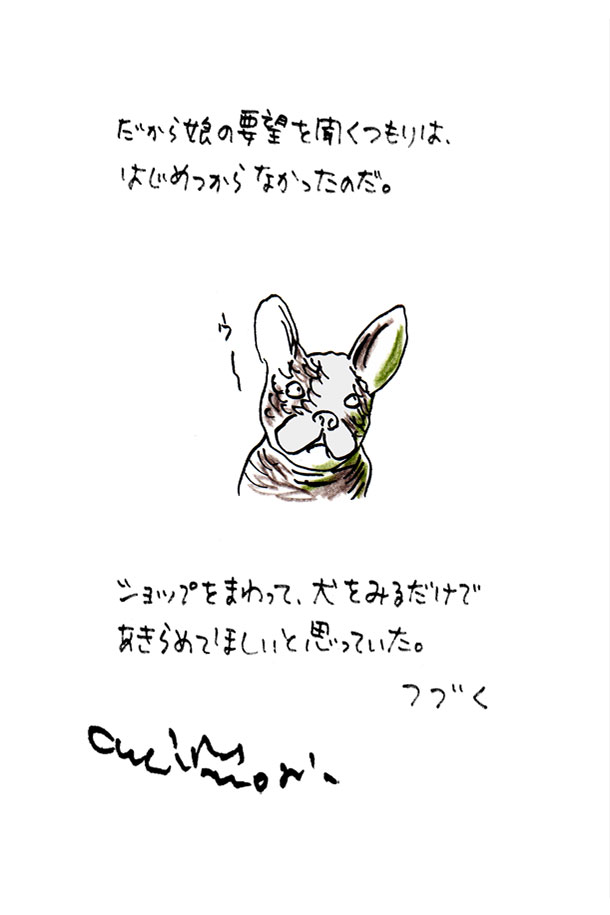 だから娘の要望を聞くつもりは、
はじめっから なかったのだ。
ゥー
ショップをまわって、犬をみるだけで
あきらめてほしいと思っていた。
つづく